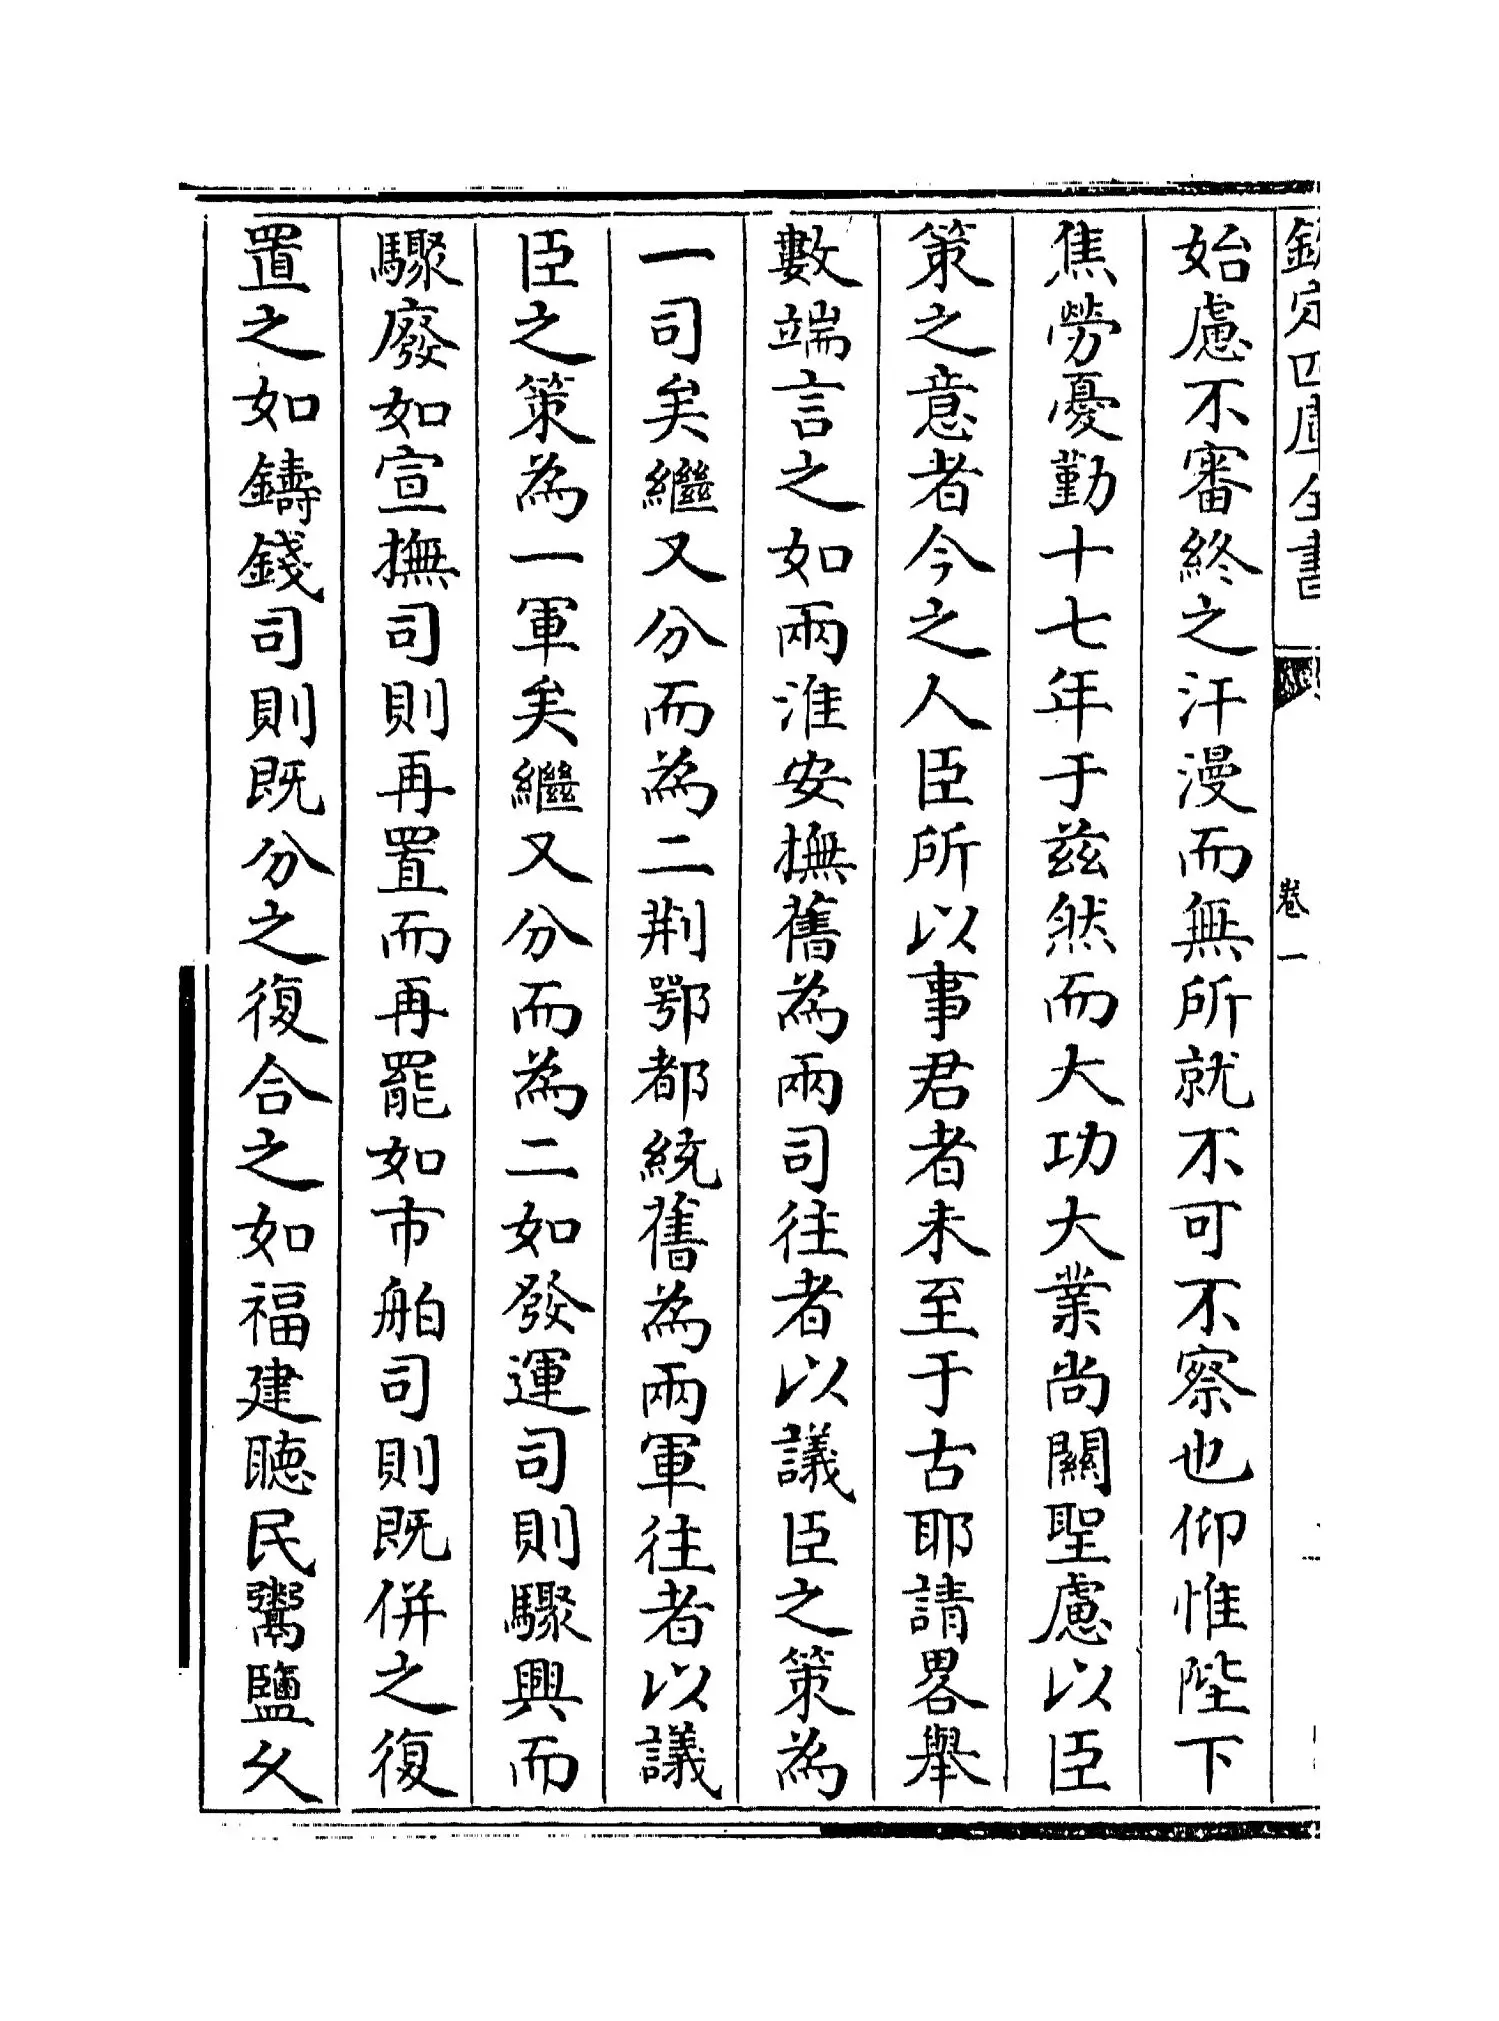 欽定四庫全書
卷一
始慮不審終之汗漫而無所就不可不察也仰惟陛下
焦勞憂勤十七年于兹然而大功大業尚關聖慮以臣
策之意者今之人臣所以事君者未至于古耶請畧舉
數端言之如兩淮安撫舊為兩司往者以議臣之策為
一司矣繼又分而為二荆鄂都統舊為兩軍往者以議
臣之策為一軍矣繼又分而為二如發運司則驟興而
驟廢如宣撫司則再置而再罷如市舶司則既併之復
置之如鑄錢司則既分之復合之如福建聽民鬻鹽乆